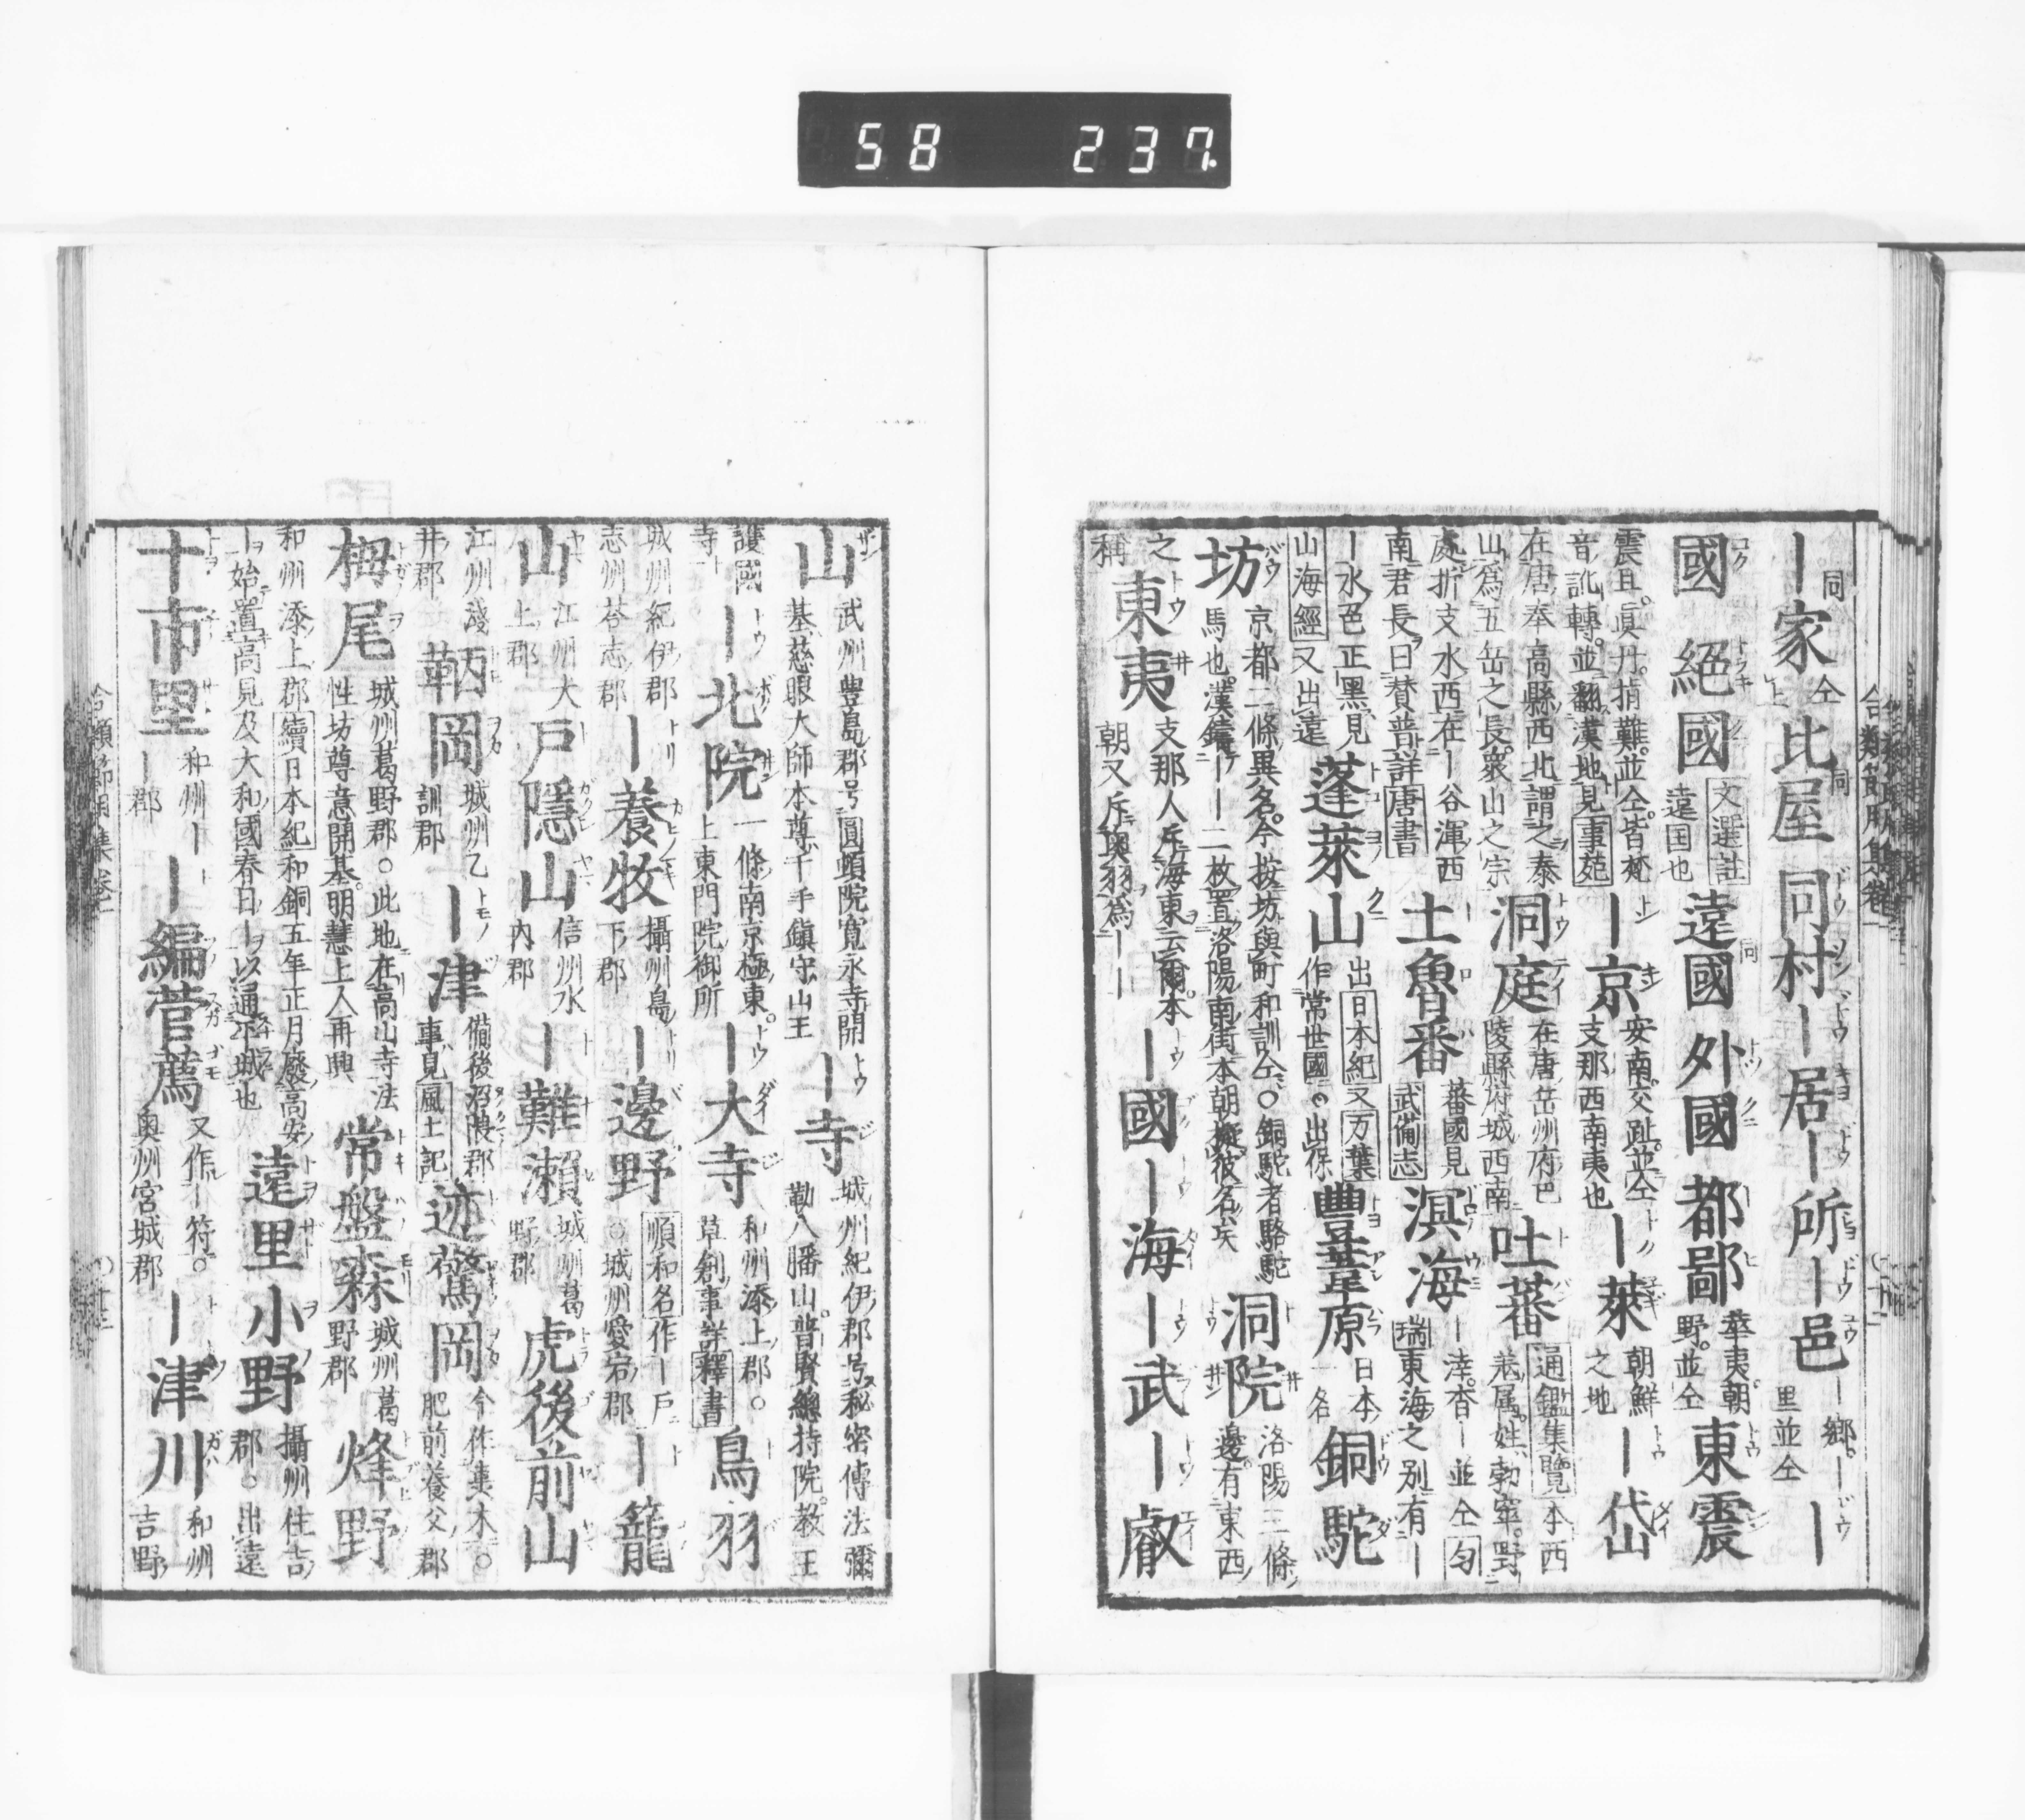 58 237
ー家仝 比屋 同村 ー居 ー所 ー邑 ー郷。ー里並仝 ー
國 絕國 文選註 遠国也 遠國 外國 都鄙 華夷。朝野。並仝 東震
震旦。眞丹。指難。並仝。皆梵音訛轉。並翻漢地見事苑 ー京 安南。交趾。並仝支那西南夷也 ー萊 朝鮮之地 ー岱
在唐奉高縣西北謂之泰山爲五岳之長衆山之宗 洞庭 在唐岳州府巴陵縣府城西南 吐蕃 通鑑集覽本西羗属。姓勃窣。野
處折支水西在ー谷渾西南君長曰賛普詳唐書 土魯番 蕃國見武備志 溟海 ー涬。杳ー並仝 匀瑞東海之別有ー
ー水色正黑見山海經又出遠 蓬萊山 出日本紀又万葉作常世國。出保 豊葦原 日本一名 銅駝
坊 京都二條異名。今按坊與町和訓仝。〇銅駝者駱駝馬也漢鑄ーー二枚置洛陽南街本朝擬彼名矣 洞院 洛陽三條邊有東西
之稱 東夷 支那人斥海東云爾。本朝又斥奥羽爲ーー ー國 ー海 ー武 ー叡
山 武州豊島郡号圓頓院寛永寺開基慈眼大師本尊千手鎮守山王 ー寺 城州紀伊郡号秘密傳法彌勒八膰山。普賢總持院。教王
護國寺 ー北院 一條南京極東。上東門院御所 ー大寺 和州添上郡。草創事詳釋書 鳥羽
城州紀伊郡志州荅志郡 ー養牧 攝州島下郡 ー邊野 順和名作ー戸〇城州愛宕郡 ー籠
山 江州大上郡 戸隱山 信州水内郡 ー難瀬 城州葛野郡 虎後前山
江州淺井郡 鞆岡 城州乙訓郡 ー津 備後沼隈郡事見風土記 迹驚岡 今作轟木〇肥前養父郡
栂尾 城州葛野郡〇此地在高山寺法性坊尊意開基。明慧上人再興 常盤森 城州葛野郡 烽野
和州添上郡續日本紀和銅五年正月廢高安ー始置高見及大和國春日ー以通平城也 遠里小野 攝州住吉郡〇出遠
十市里 和州ーー郡 ー編菅薦 又作ー符。奥州宮城郡 ー津川 和州吉野